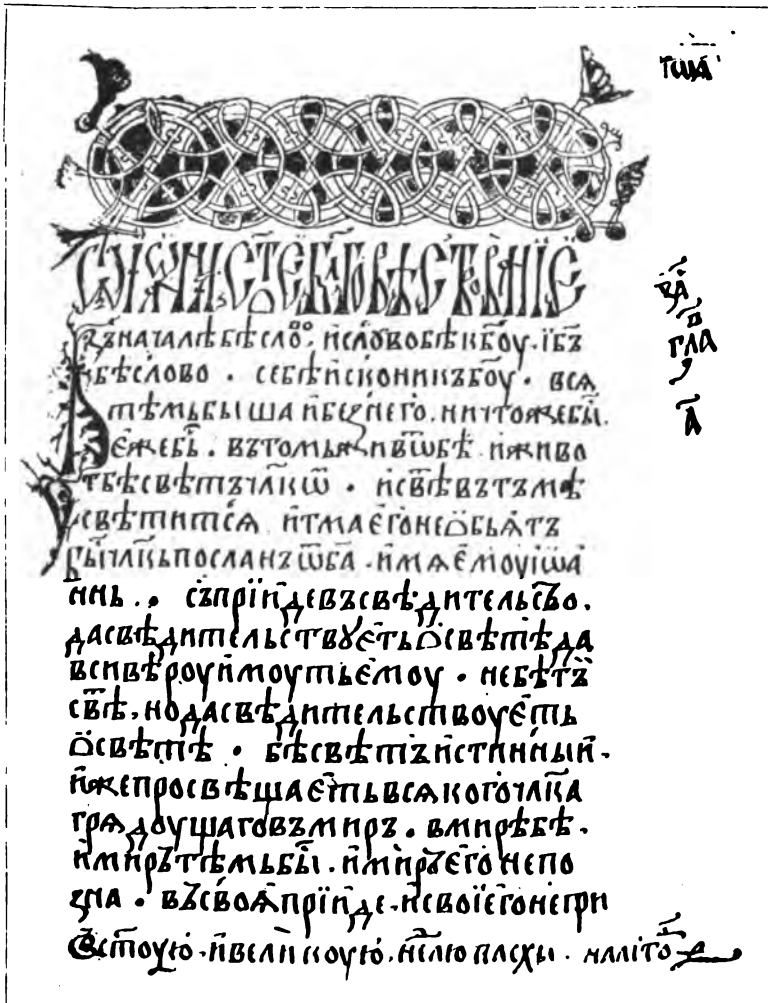 ѿ іѡанна ст҃ое бл҃говѣствованїе
Въначалѣбѣсло҇ . ѝсловобѣкб҃оу . їб҃ъ
бѣслово . себѣѝсконикъб҃оу . вся
тѣмьбыша ѝбезнего . ничтожебы҇ .
е́жебы҇ . втомьживѿбѣ ѝживо
тбѣсвѣтъчл҃кѡ҇ . ѝсвѣ҇вътъмѣ
свѣтитсѧ ѝтмаегонеѻбьѧтъ
Бы҇чл҃кьпосланъѿб҃а . ѝмѧемоуіѡа
ннь . съпрїидевъсвѣдительс҇во .
дасвѣдительствꙋетьѻсвѣтѣда
всивѣроуимоутьемоу . небѣтъ
свѣ҇ , нодасвѣдительствоуеть
ѻсвѣтѣ . бѣсвѣтъѝстинныи .
ѝжепросвѣщаетьвсѧкогочл҃ка
грѧдоущаговъмиръ . вмирѣбѣ .
ѝмирътѣмьбы҇ . ѝмиръегонепо
зна . въсвоѧпрїиде . ѝсвоїегонепри
въст҃оую . ѝвеликоую . нл҃юпасхы . налїто҇
тща
гла
а҃